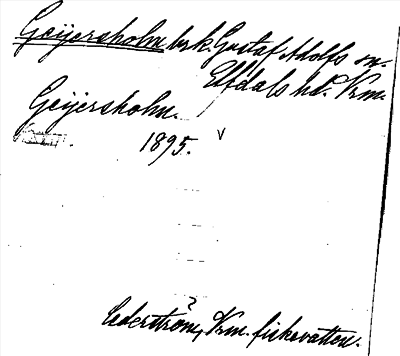 Geijersholm brk Gustaf Adolfs sn.
Elfdals hd. Vrm.
Geijersholm.
1895. v
?
Cederström, Vrm. fiskevatten.